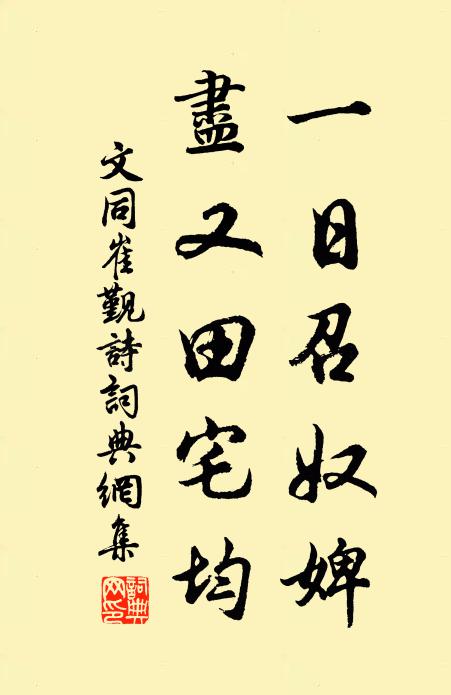 一日召奴婢
盡又田宅均
文同崔觐詩詞典網集
詞典网印